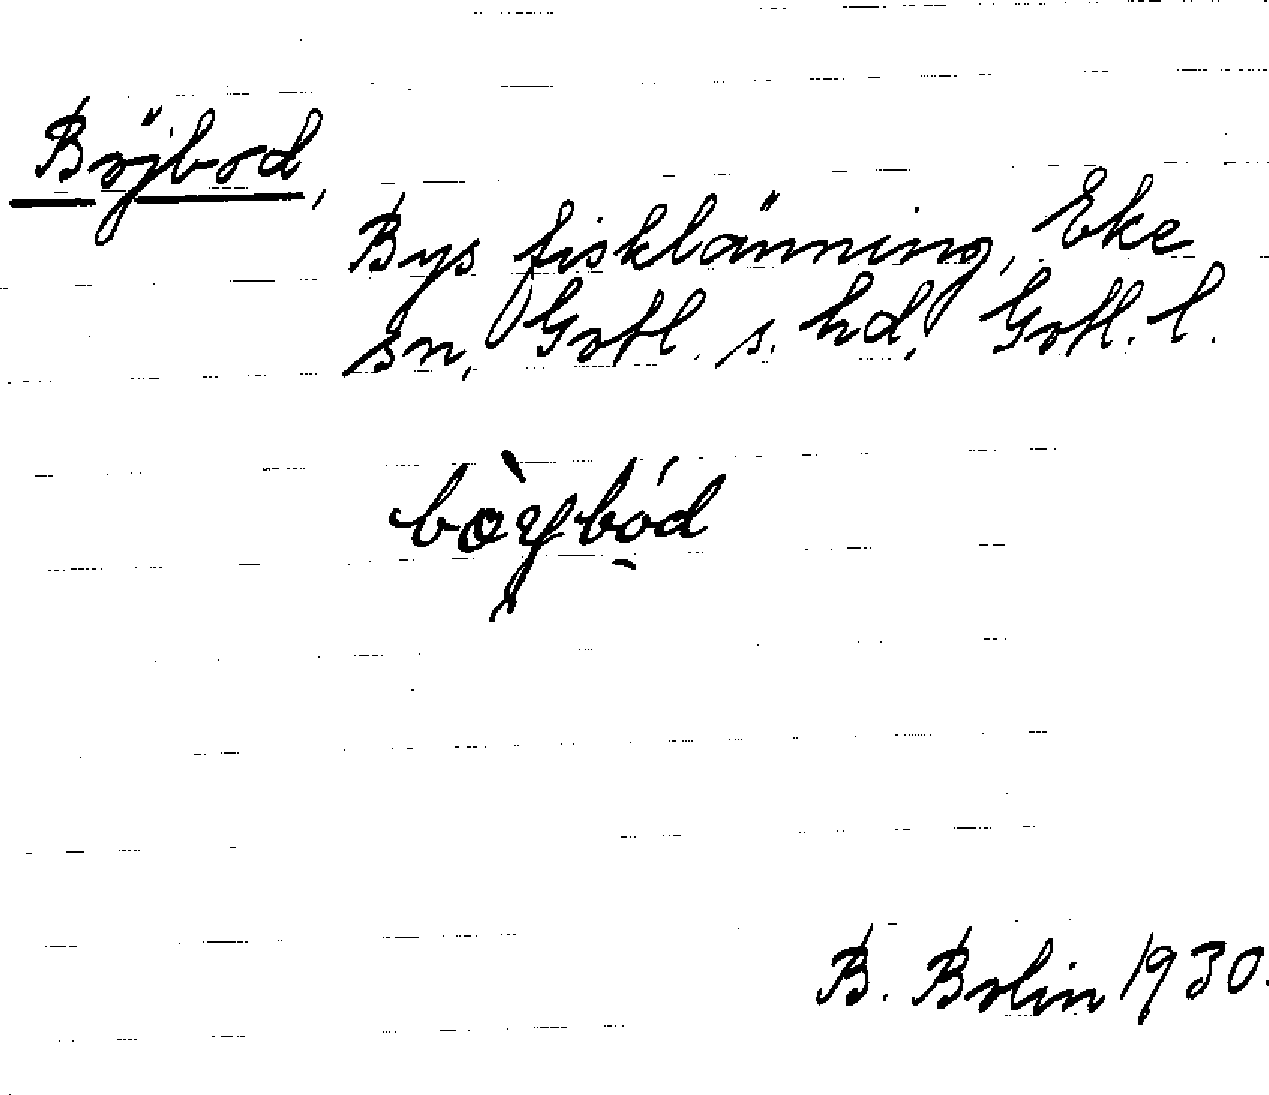 Böjbod,
Bys fisklänning, Eke
sn, Gotl. s. hd, Gotl. l.
B. Bolin 1930.